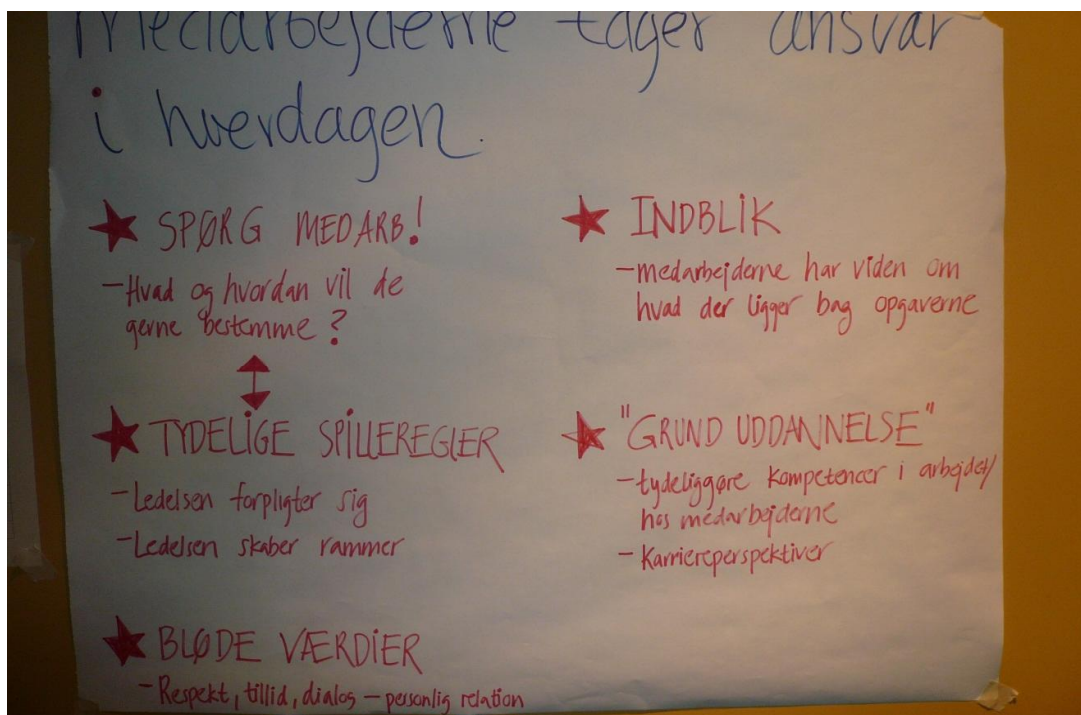 medarbejderne tager ansvar
i hverdagen.
★ SPØRG MEDARB!
- Hvad og hvordan vil de
gerne bestemme?
★ TYDELIGE SPILLEREGLER
- Ledelsen forpligter sig
- Ledelsen skaber rammer
★ BLØDE VÆRDIER
- Respekt, tillid, dialog - personlig relation
★ INDBLIK
- medarbejderne har viden om
hvad der ligger bag opgaverne
★ "GRUND UDDANNELSE"
- tydeliggøre kompetencer i arbejdet/
hos medarbejderne
- Karriereperspektiver